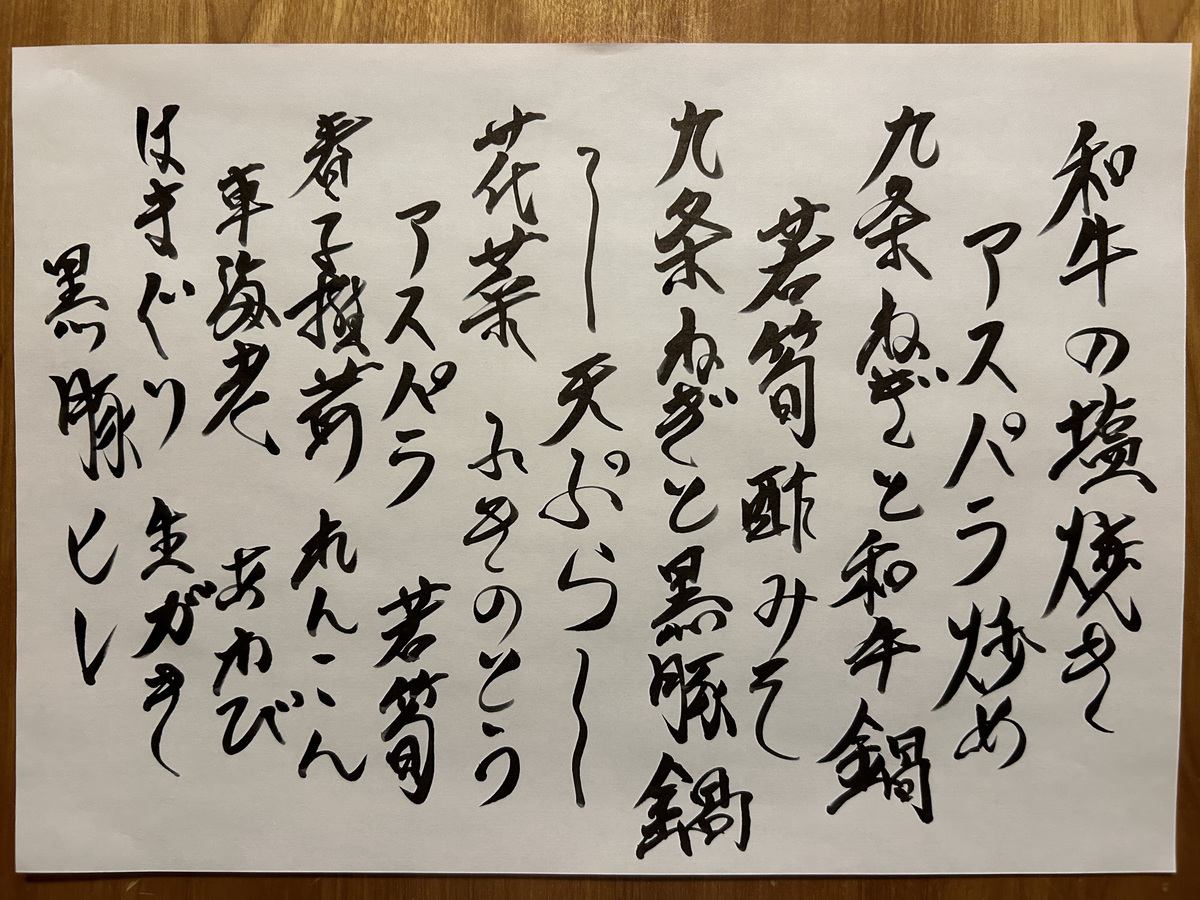 和牛の塩焼き
アスパラ炒め
九条ねぎと和牛鍋
若筍酢みそ
九条ねぎと黒豚鍋
〜天ぷら〜
花菜 ふきのとう
アスパラ 若筍
春子椎茸 れんこん
車海老 あわび
はまぐり 生がき
黒豚ヒレ